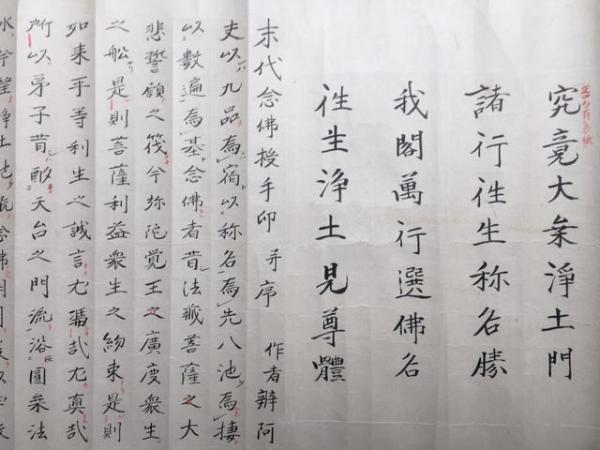 究竟大乗淨土門
諸行往生称名勝
我閣萬行選佛名
往生淨土見尊體
末代念佛授手印 并序 作者辨阿
夫以九品為宿以称名為先八池為棲
以數遍為基念佛者昔法藏菩薩之大
悲誓願之筏今弥陀覚王之廣度衆生
之舩是則菩薩利益衆生之約束是則
如来平等利生之誠言尤憑哉尤真哉
所以弟子昔酌天台之門流浴圓乗法
水今望淨土